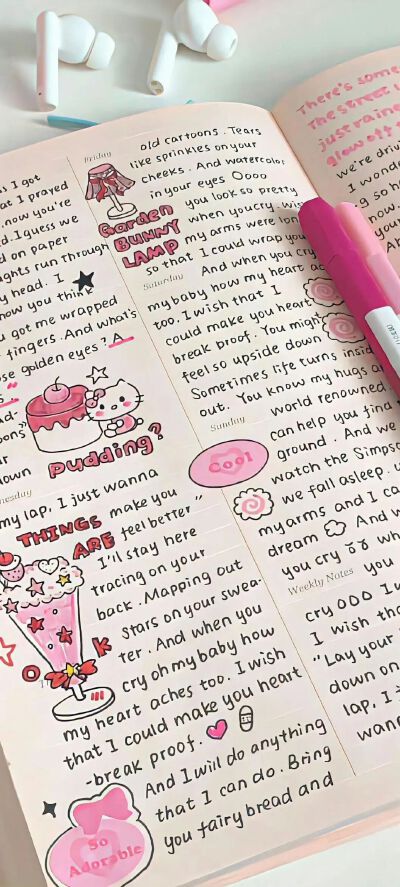 I got
I prayed
now you're
I guess we
on paper
run through
head. I
now you think
got me wrapped
fingers. And what's
golden eyes? A
down
Pudding?
my lap, I just wanna
THINGS make you
ARE feel better"
I'll stay here
tracing on your
back. Mapping out
O K
stars on your swea-
ter. And when you
cry oh my baby how
my heart aches too. I wish
that I could make you heart
-break proof.
And I will do anything
that I can do. Bring
you fairy bread and
So
Adorable
Friday
old cartoons. Tears
like sprinkles on your
cheeks. And watercolor
in your eyes Oooo
you look so pretty
Garden
BUNNY
LAMP
when you cry. wis
my arms were lon
so that I could wrap you
And when you cry
Saturday
my baby how my heart ac
too. I wish that I
could make you heart
break proof. You migh
feel so upside down
Sometimes life turns insid
out. You know my hugs a
world renowned
Sunday
can help you find
ground. And we
Cool
watch the Simpso
we fall asleep.
my arms and I ca
dream And w
you cry wh
Weekly Notes
you
cry OOO I w
I wish tha
"Lay your
down on
lap, I j
wann
There's some
The street L
just raine
glow off
we're driv
I wonde